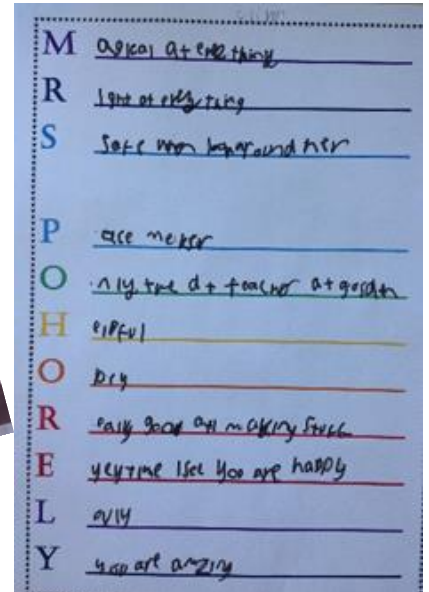 M agical at everything
R ight at everything
S afe when around her
P ace meker
O nly the teacher at
H elpful
O
R ealy good at making stuff
E veytime I see you are happy
L ovly
Y you are amazing